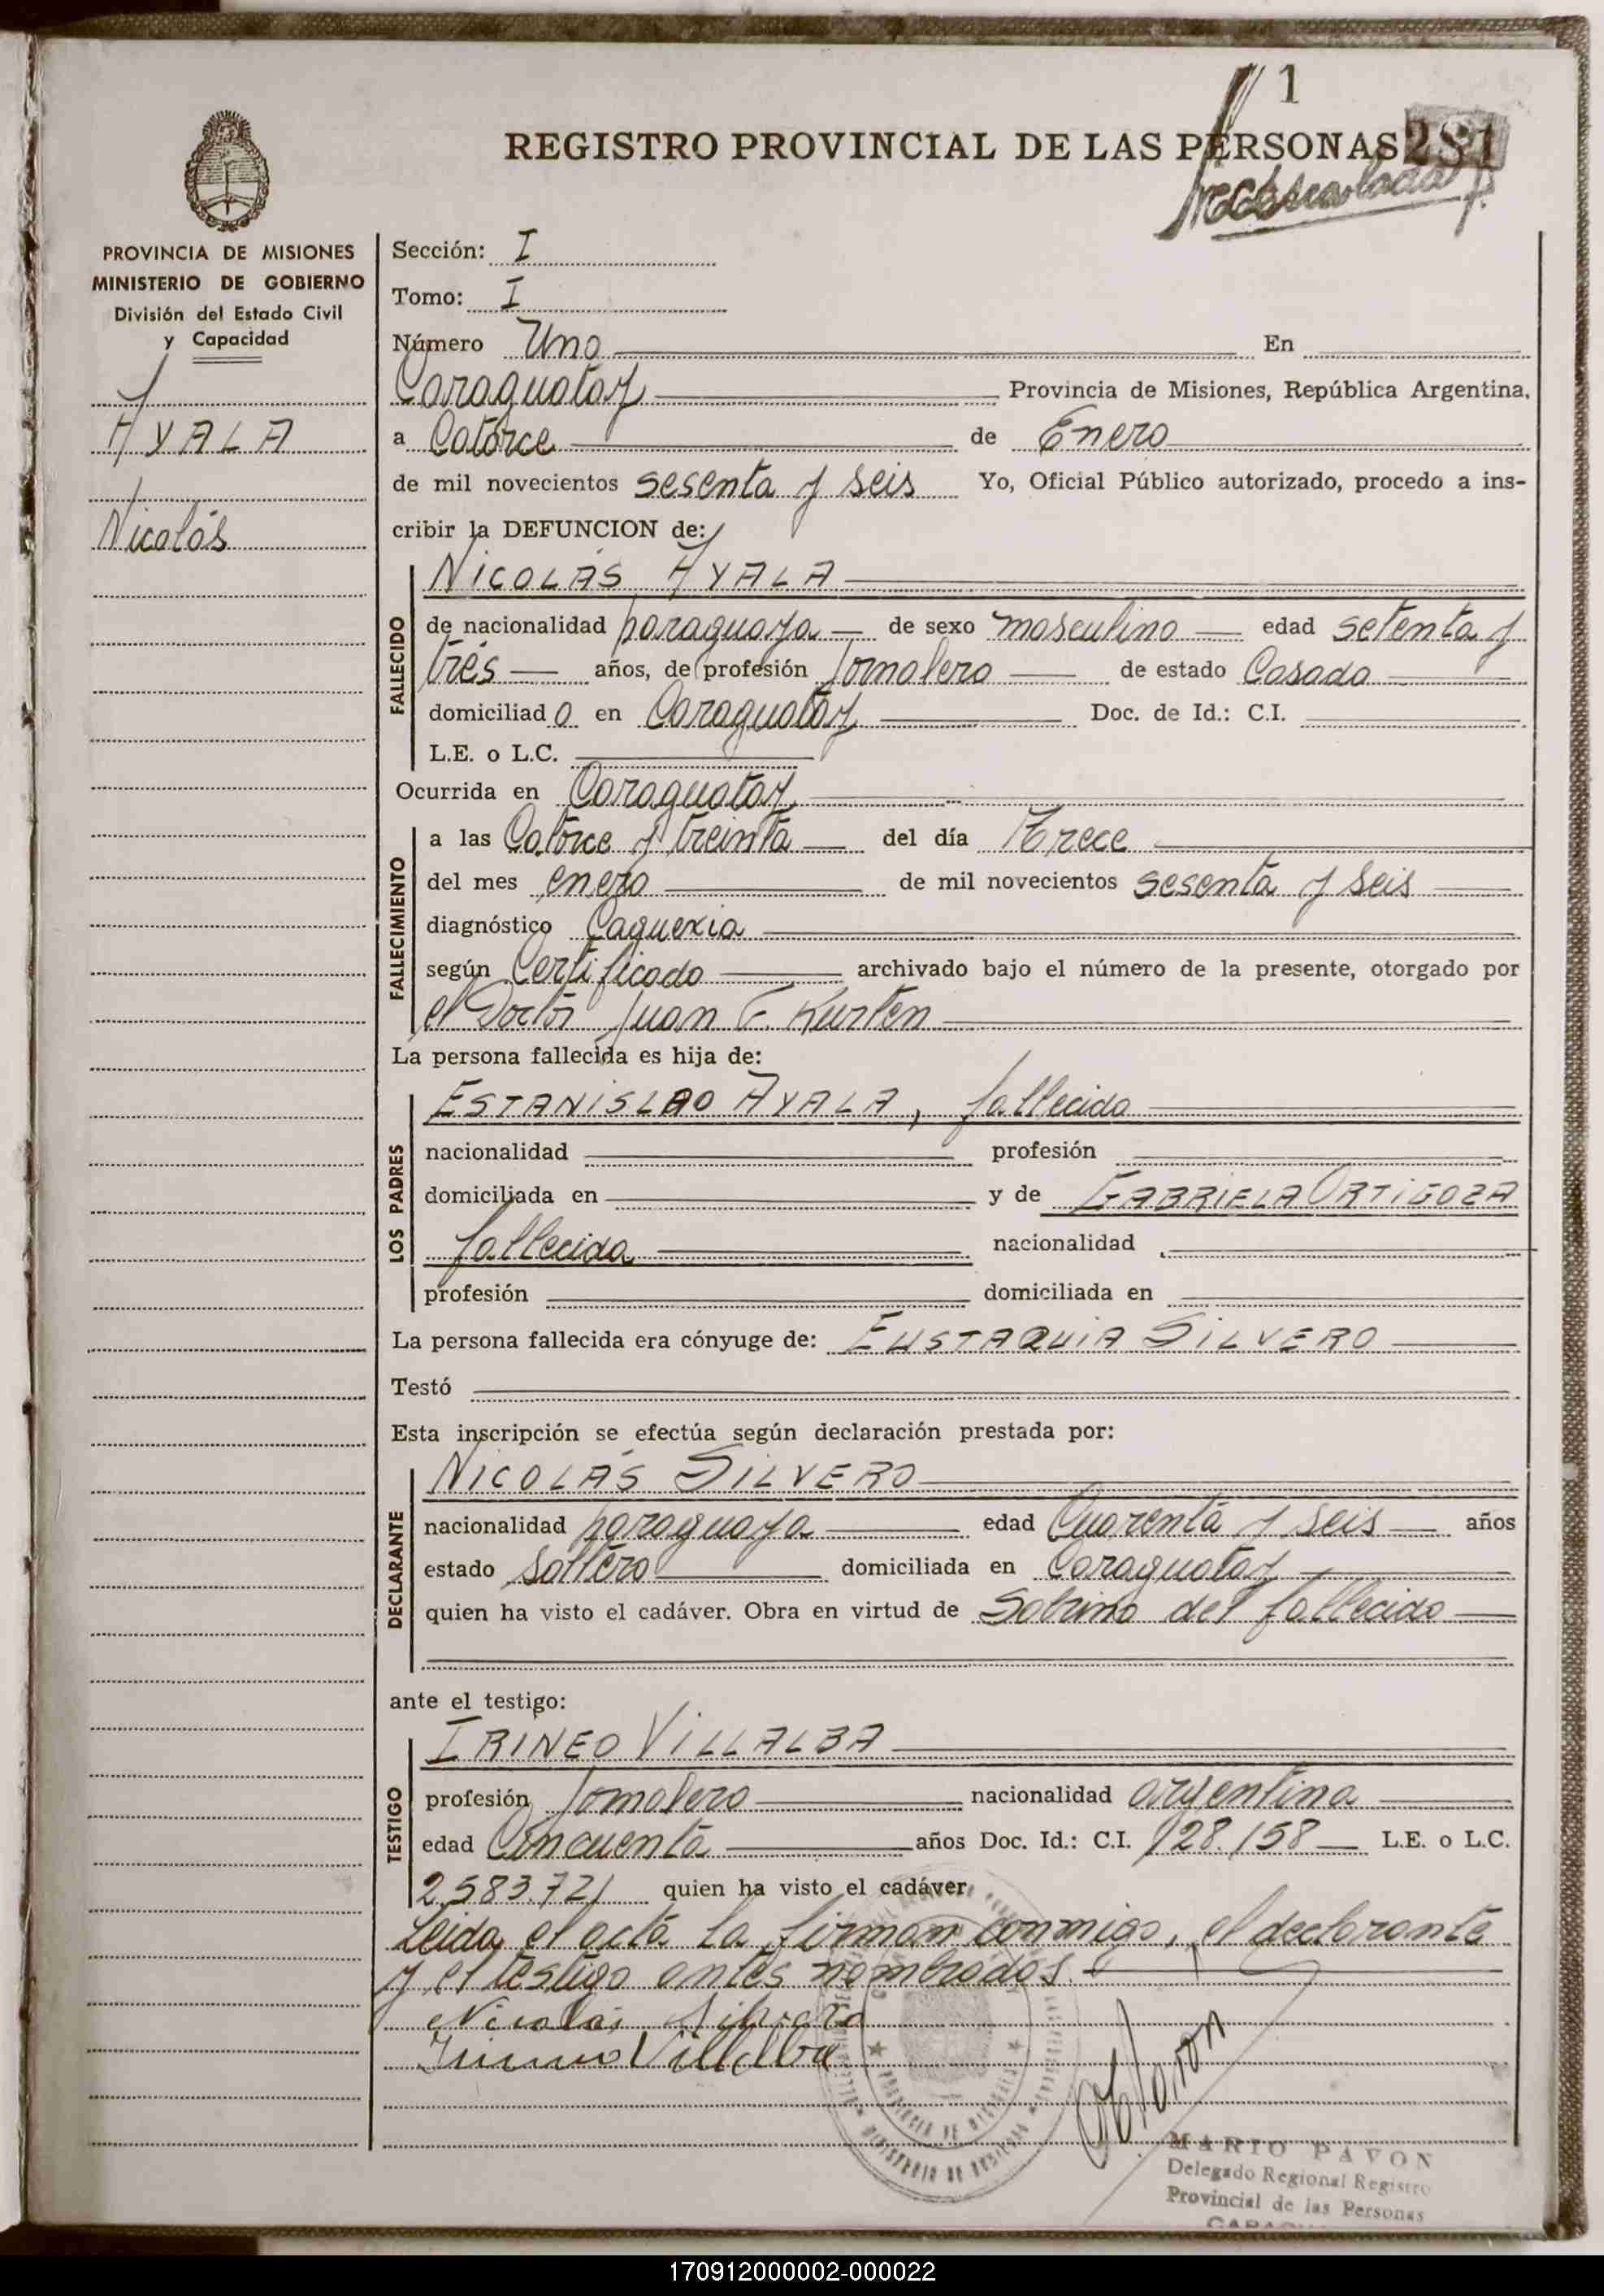 1
REGISTRO PROVINCIAL DE LAS PERSONAS 281
PROVINCIA DE MISIONES
MINISTERIO DE GOBIERNO
División del Estado Civil
y Capacidad
AYALA
Nicolás
Sección: I
Tomo: I
Número Uno En
Caraguatay Provincia de Misiones, República Argentina,
a Catorce de Enero
de mil novecientos sesenta y seis Yo, Oficial Público autorizado, procedo a ins-
cribir la DEFUNCION de:
NICOLÁS AYALA
FALLECIDO
de nacionalidad paraguaya de sexo masculino edad setenta y
tres años, de profesión Jornalero de estado Casado
domiciliado en Caraguatay Doc. de Id.: C.I.
L.E. o L.C.
Ocurrida en Caraguatay
FALLECIMIENTO
a las Catorce y treinta del día Trece
del mes enero de mil novecientos sesenta y seis
diagnóstico Caquexia
según Certificado archivado bajo el número de la presente, otorgado por
el Doctor Juan C. Kurten
La persona fallecida es hija de:
LOS PADRES
ESTANISLAO AYALA, fallecido
nacionalidad profesión
domiciliada en y de GABRIELA ORTIGOZA
fallecida nacionalidad
profesión domiciliada en
La persona fallecida era cónyuge de: EUSTAQUIA SILVERO
Testó
Esta inscripción se efectúa según declaración prestada por:
DECLARANTE
NICOLÁS SILVERO
nacionalidad paraguaya edad Cuarenta y seis años
estado soltero domiciliada en Caraguatay
quien ha visto el cadáver. Obra en virtud de Sobrino del fallecido
ante el testigo:
TESTIGO
IRINEO VILLALBA
profesión Jornalero nacionalidad argentina
edad Cincuenta años Doc. Id.: C.I. 128.158 L.E. o L.C.
2583721 quien ha visto el cadáver
Leida el acta la firman conmigo, el declarante
y el testigo antes nombrados.
Nicolás Silvero
Irineo Villalba
PROVINCIA DE MISIONES
MINISTERIO DE GOBIERNO
MARIO PAVON
Delegado Regional Registro
Provincial de las Personas
170912000002-000022